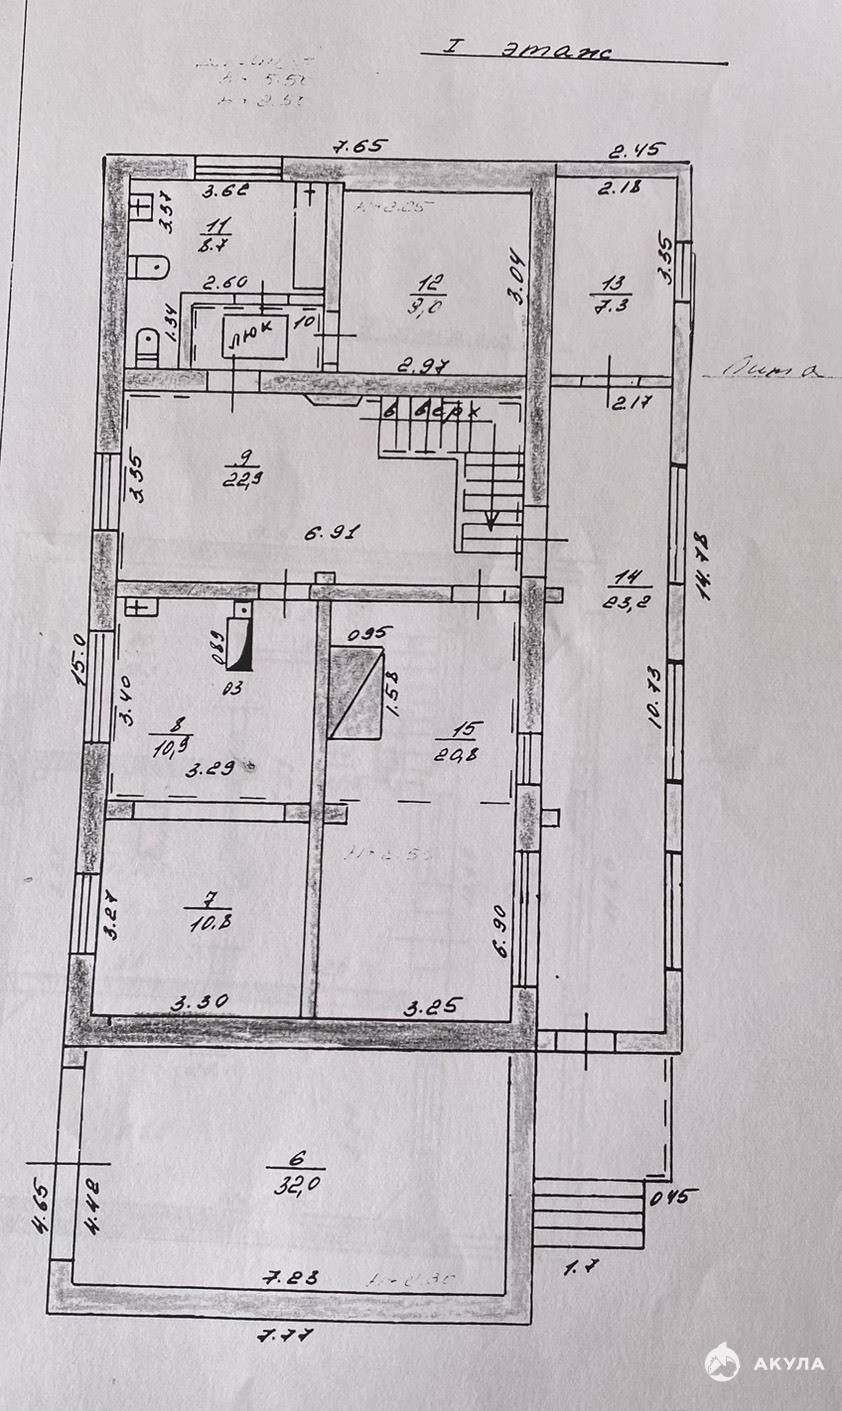 I этаж
H= 2.50
7.65
2.45
3.62
2.18
3.37
11
8.7
H=2.25
3.04
3.35
12
9,0
13
7.3
2.60
1.34
люк
10
2.97
2.17
в верх
9
22,9
3.35
6.91
14
23,2
14.78
15.0
089
095
03
1.58
3.40
8
10,9
3.29
15
20,8
10.73
H=2.50
7
10.8
3.27
6.90
3.30
3.25
6
32,0
4.65
4.42
045
1.7
7.23
7.77
АКУЛА